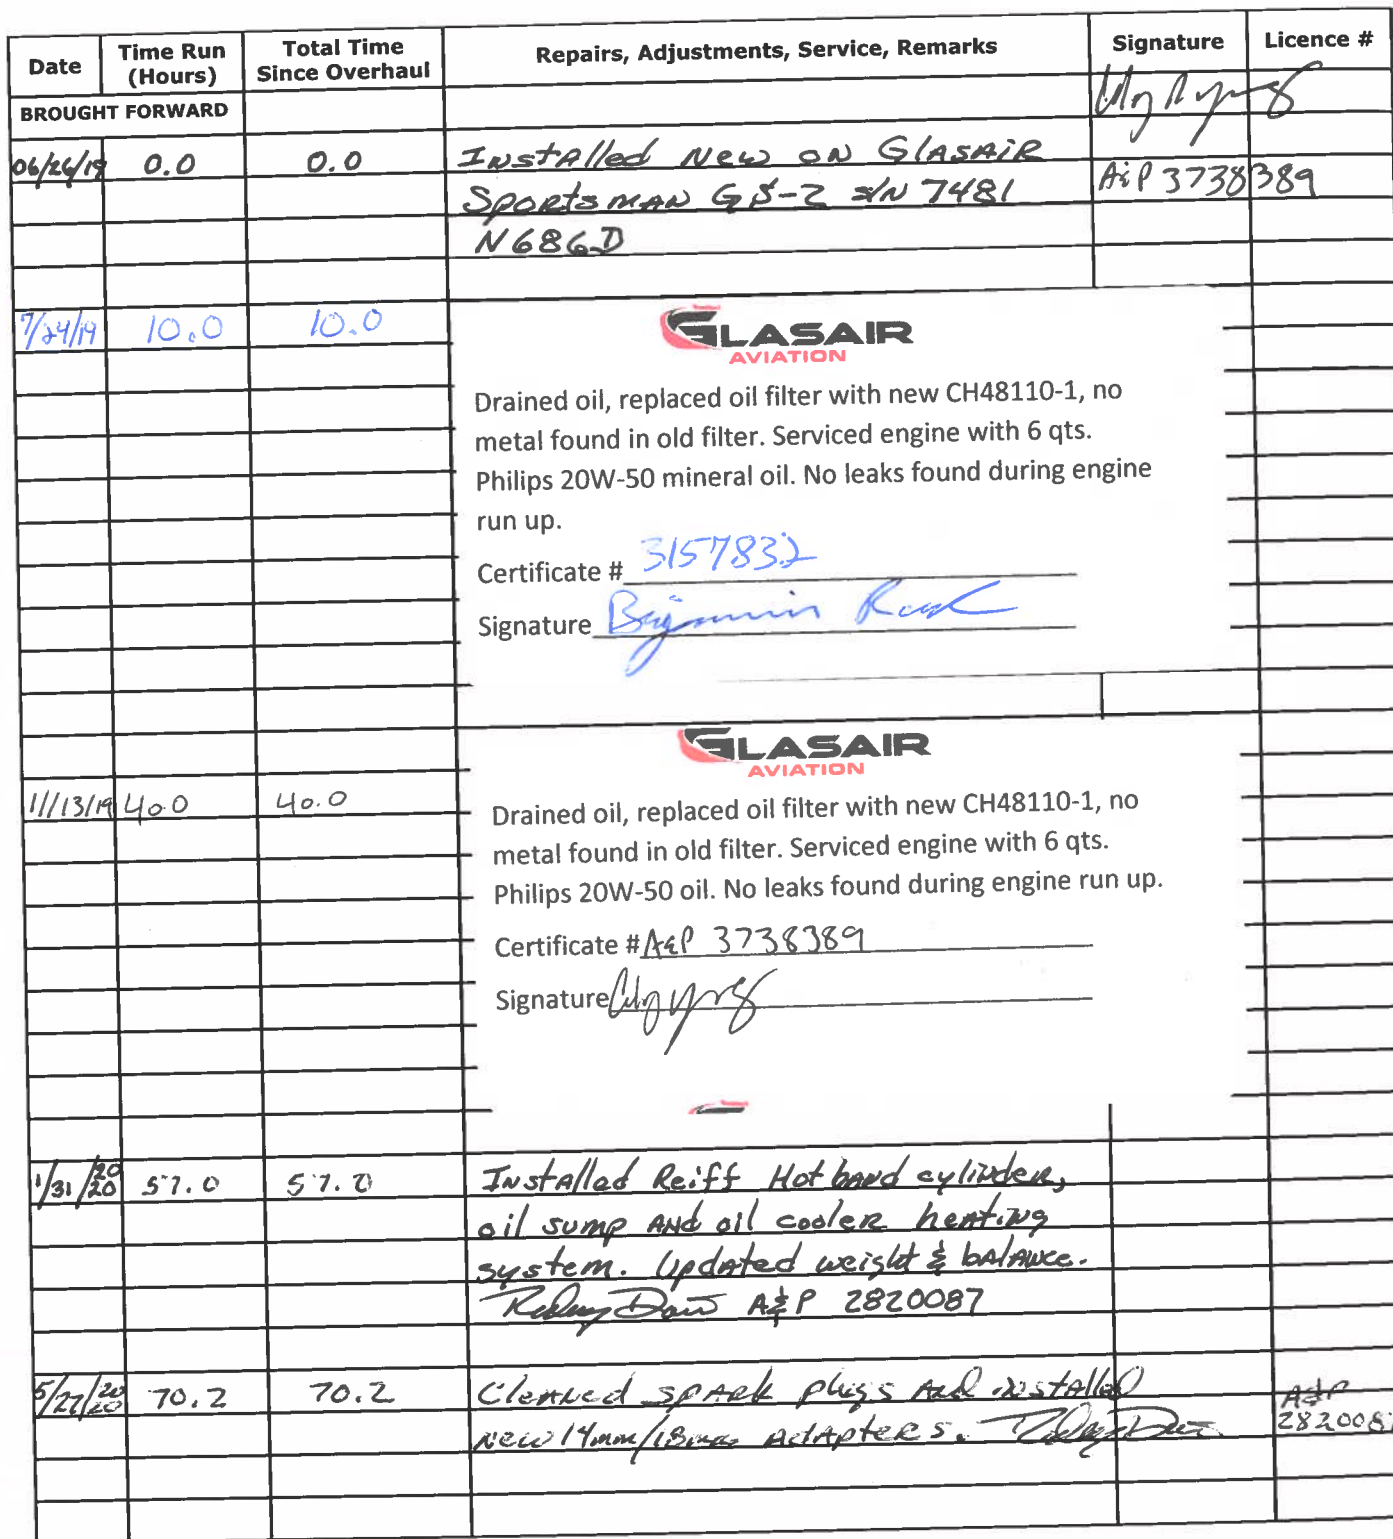 Date
Time Run
(Hours)
Total Time
Since Overhaul
Repairs, Adjustments, Service, Remarks
Signature
Licence #
BROUGHT FORWARD
06/26/19 0.0 0.0 Installed New on Glasair
A&P 3738389
Sportsman GS-2 S/N 7481
N686D
7/24/19 10.0 10.0
GLASAIR
AVIATION
Drained oil, replaced oil filter with new CH48110-1, no
metal found in old filter. Serviced engine with 6 qts.
Philips 20W-50 mineral oil. No leaks found during engine
run up.
Certificate # 3157832
Signature Benjamin
GLASAIR
AVIATION
11/13/19 40.0 40.0
Drained oil, replaced oil filter with new CH48110-1, no
metal found in old filter. Serviced engine with 6 qts.
Philips 20W-50 oil. No leaks found during engine run up.
Certificate # A&P 3738389
Signature
1/31/2020 57.0 57.0 Installed Reiff Hotband cylinder,
oil sump and oil cooler heating
system. Updated weight & balance.
A&P 2820087
5/27/2020 70.2 70.2 Cleaned spark plugs and installed
A&P
new 14mm/18mm adapters.
2820087